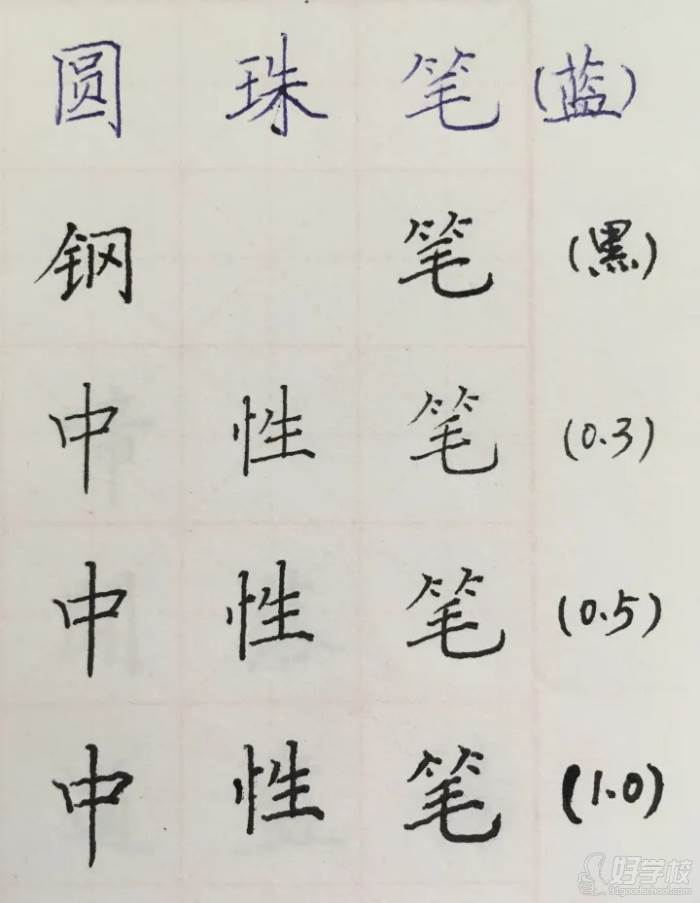 圆珠笔(蓝)
钢 笔(黑)
中性笔(0.3)
中性笔(0.5)
中性笔(1.0)
好学校
91goodschool.com